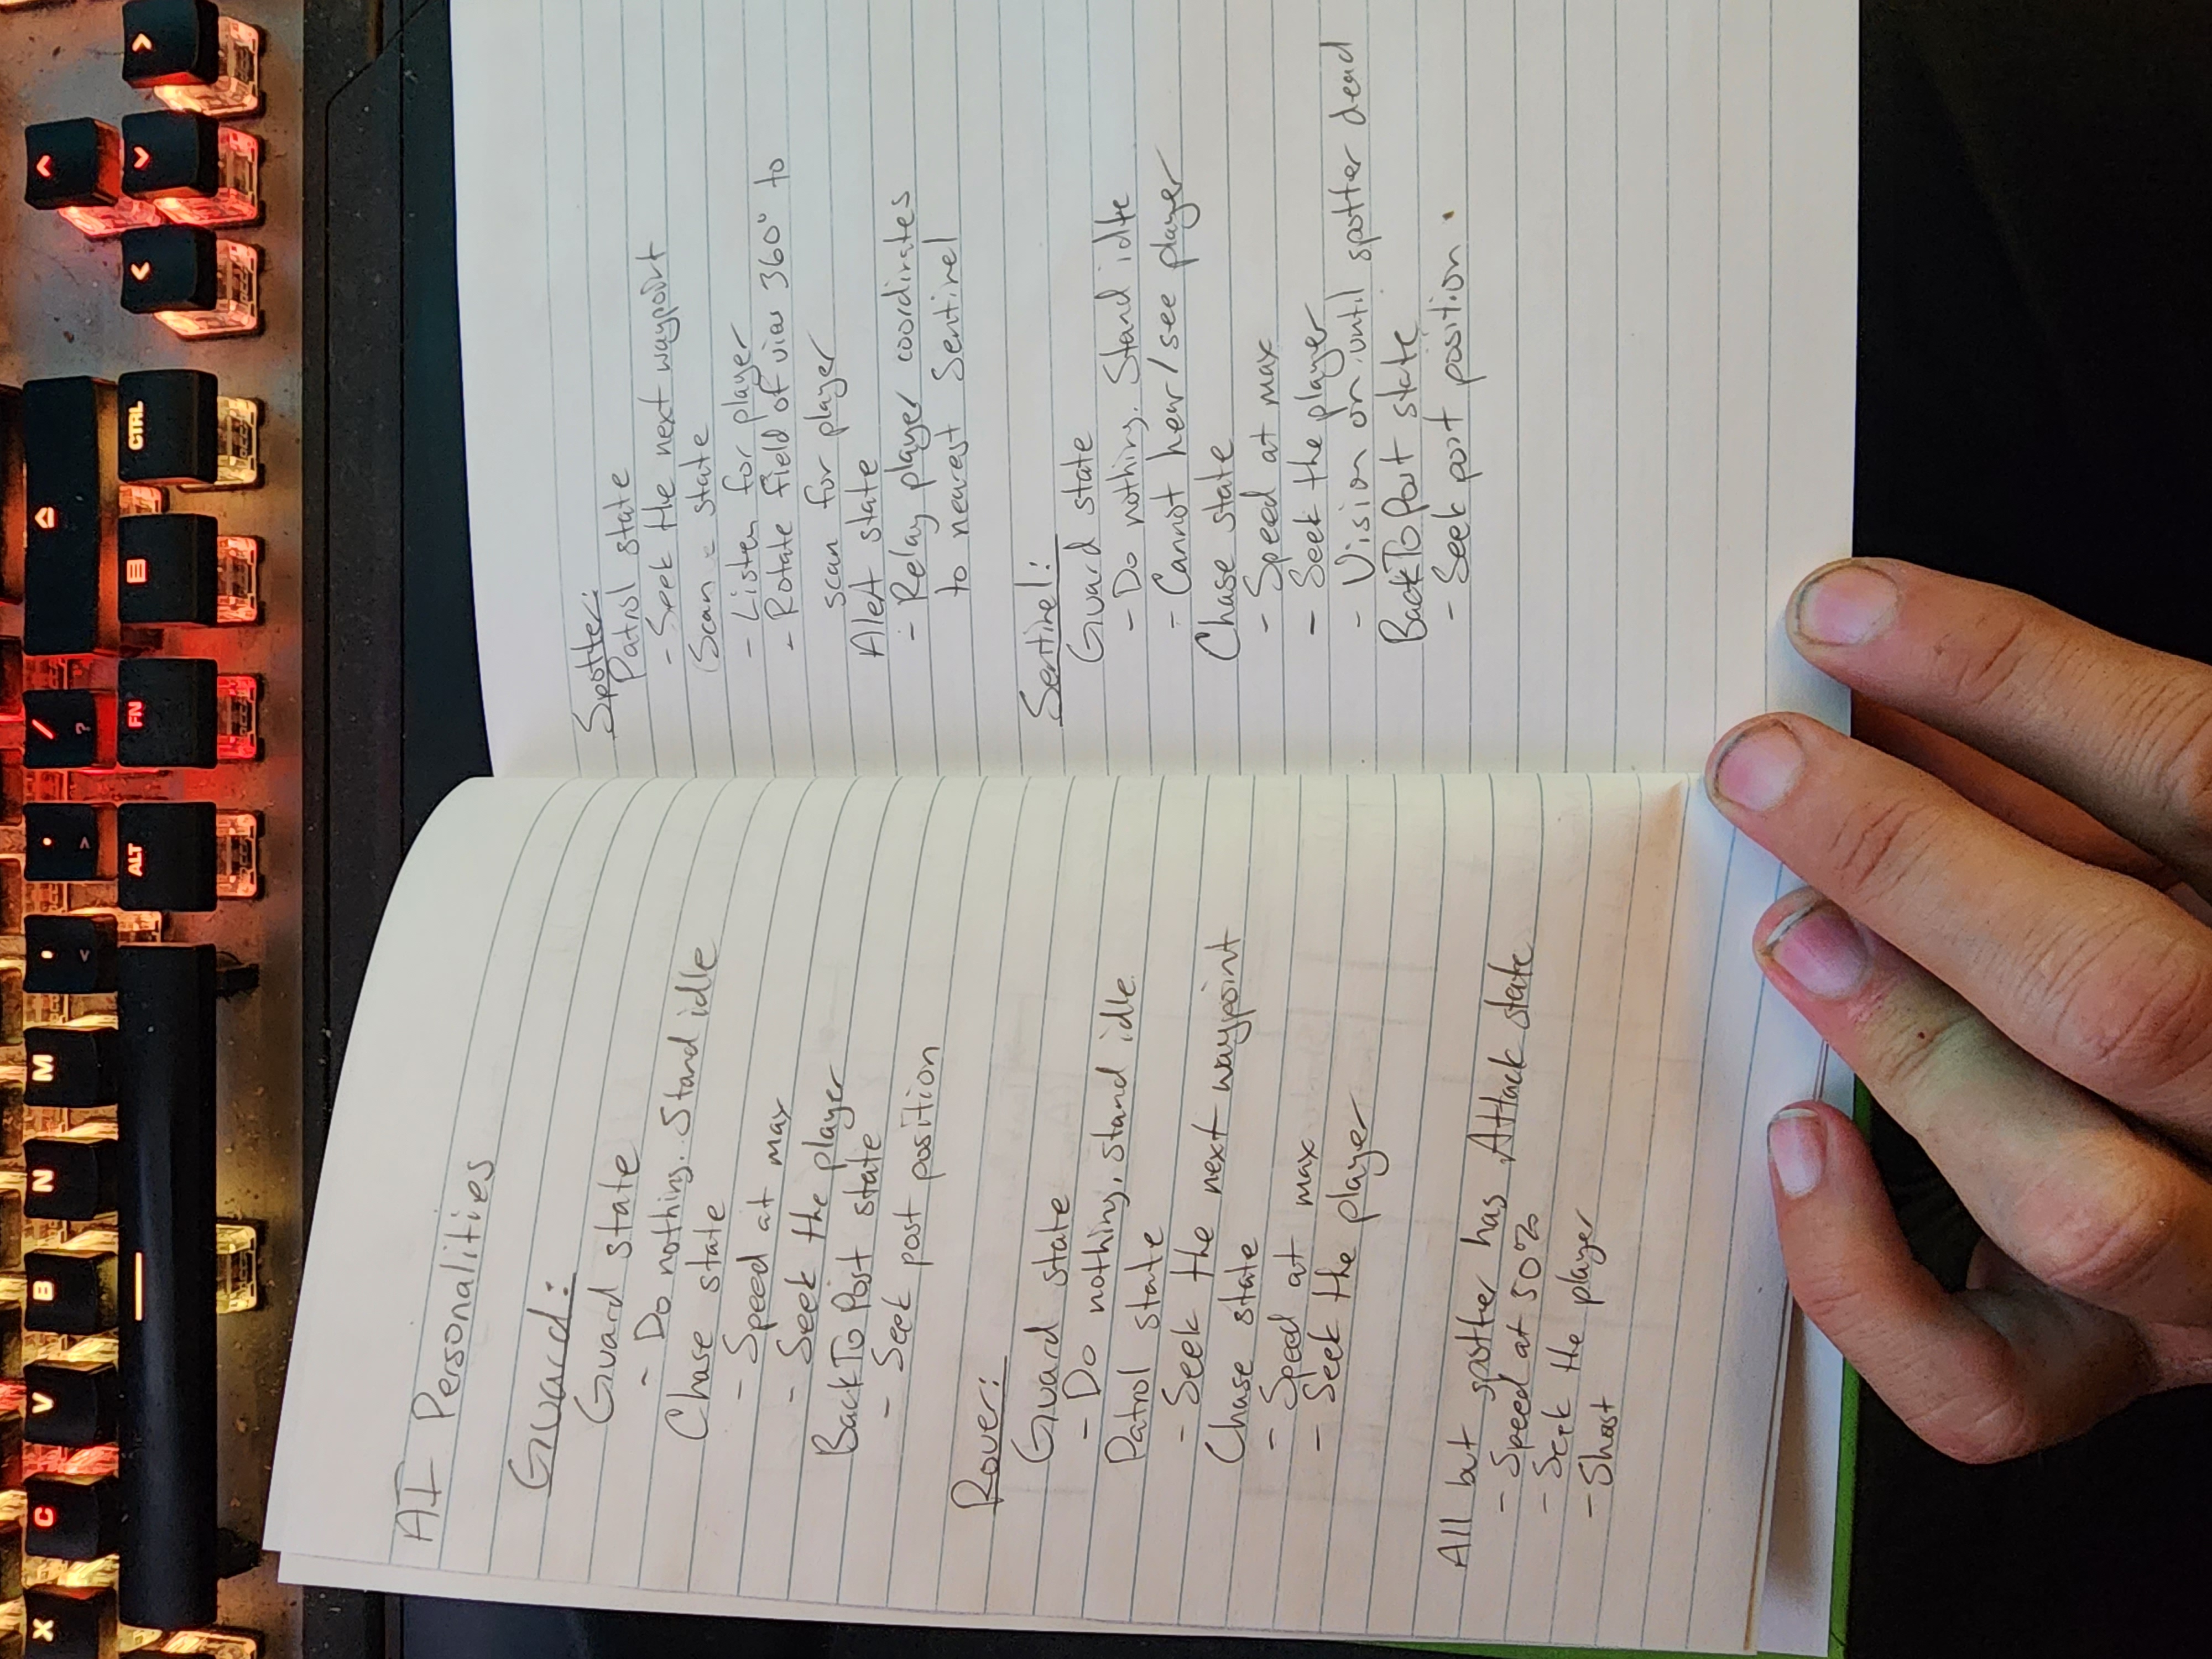 X C V B N M , < . > / ?
ALT FN CTRL
AI Personalities
Guard:
Guard state
- Do nothing. Stand idle
Chase state
- Speed at max
- Seek the player
BackToPost state
- Seek post position
Rover:
Guard state
- Do nothing. Stand idle.
Patrol state
- Seek the next waypoint
Chase state
- Speed at max
- Seek the player
All but spotter has Attack state
- Speed at 50%
- Seek the player
- Shoot
Spotter:
Patrol state
- Seek the next waypoint
Scan - state
- Listen for player
- Rotate field of view 360° to
scan for player
Alert state
- Relay player coordinates
to nearest Sentinel
Sentinel:
Guard state
- Do nothing. Stand idle
- Cannot hear/see player
Chase state
- Speed at max
- Seek the player
- Vision on until spotter dead
BackToPost state
- Seek post position